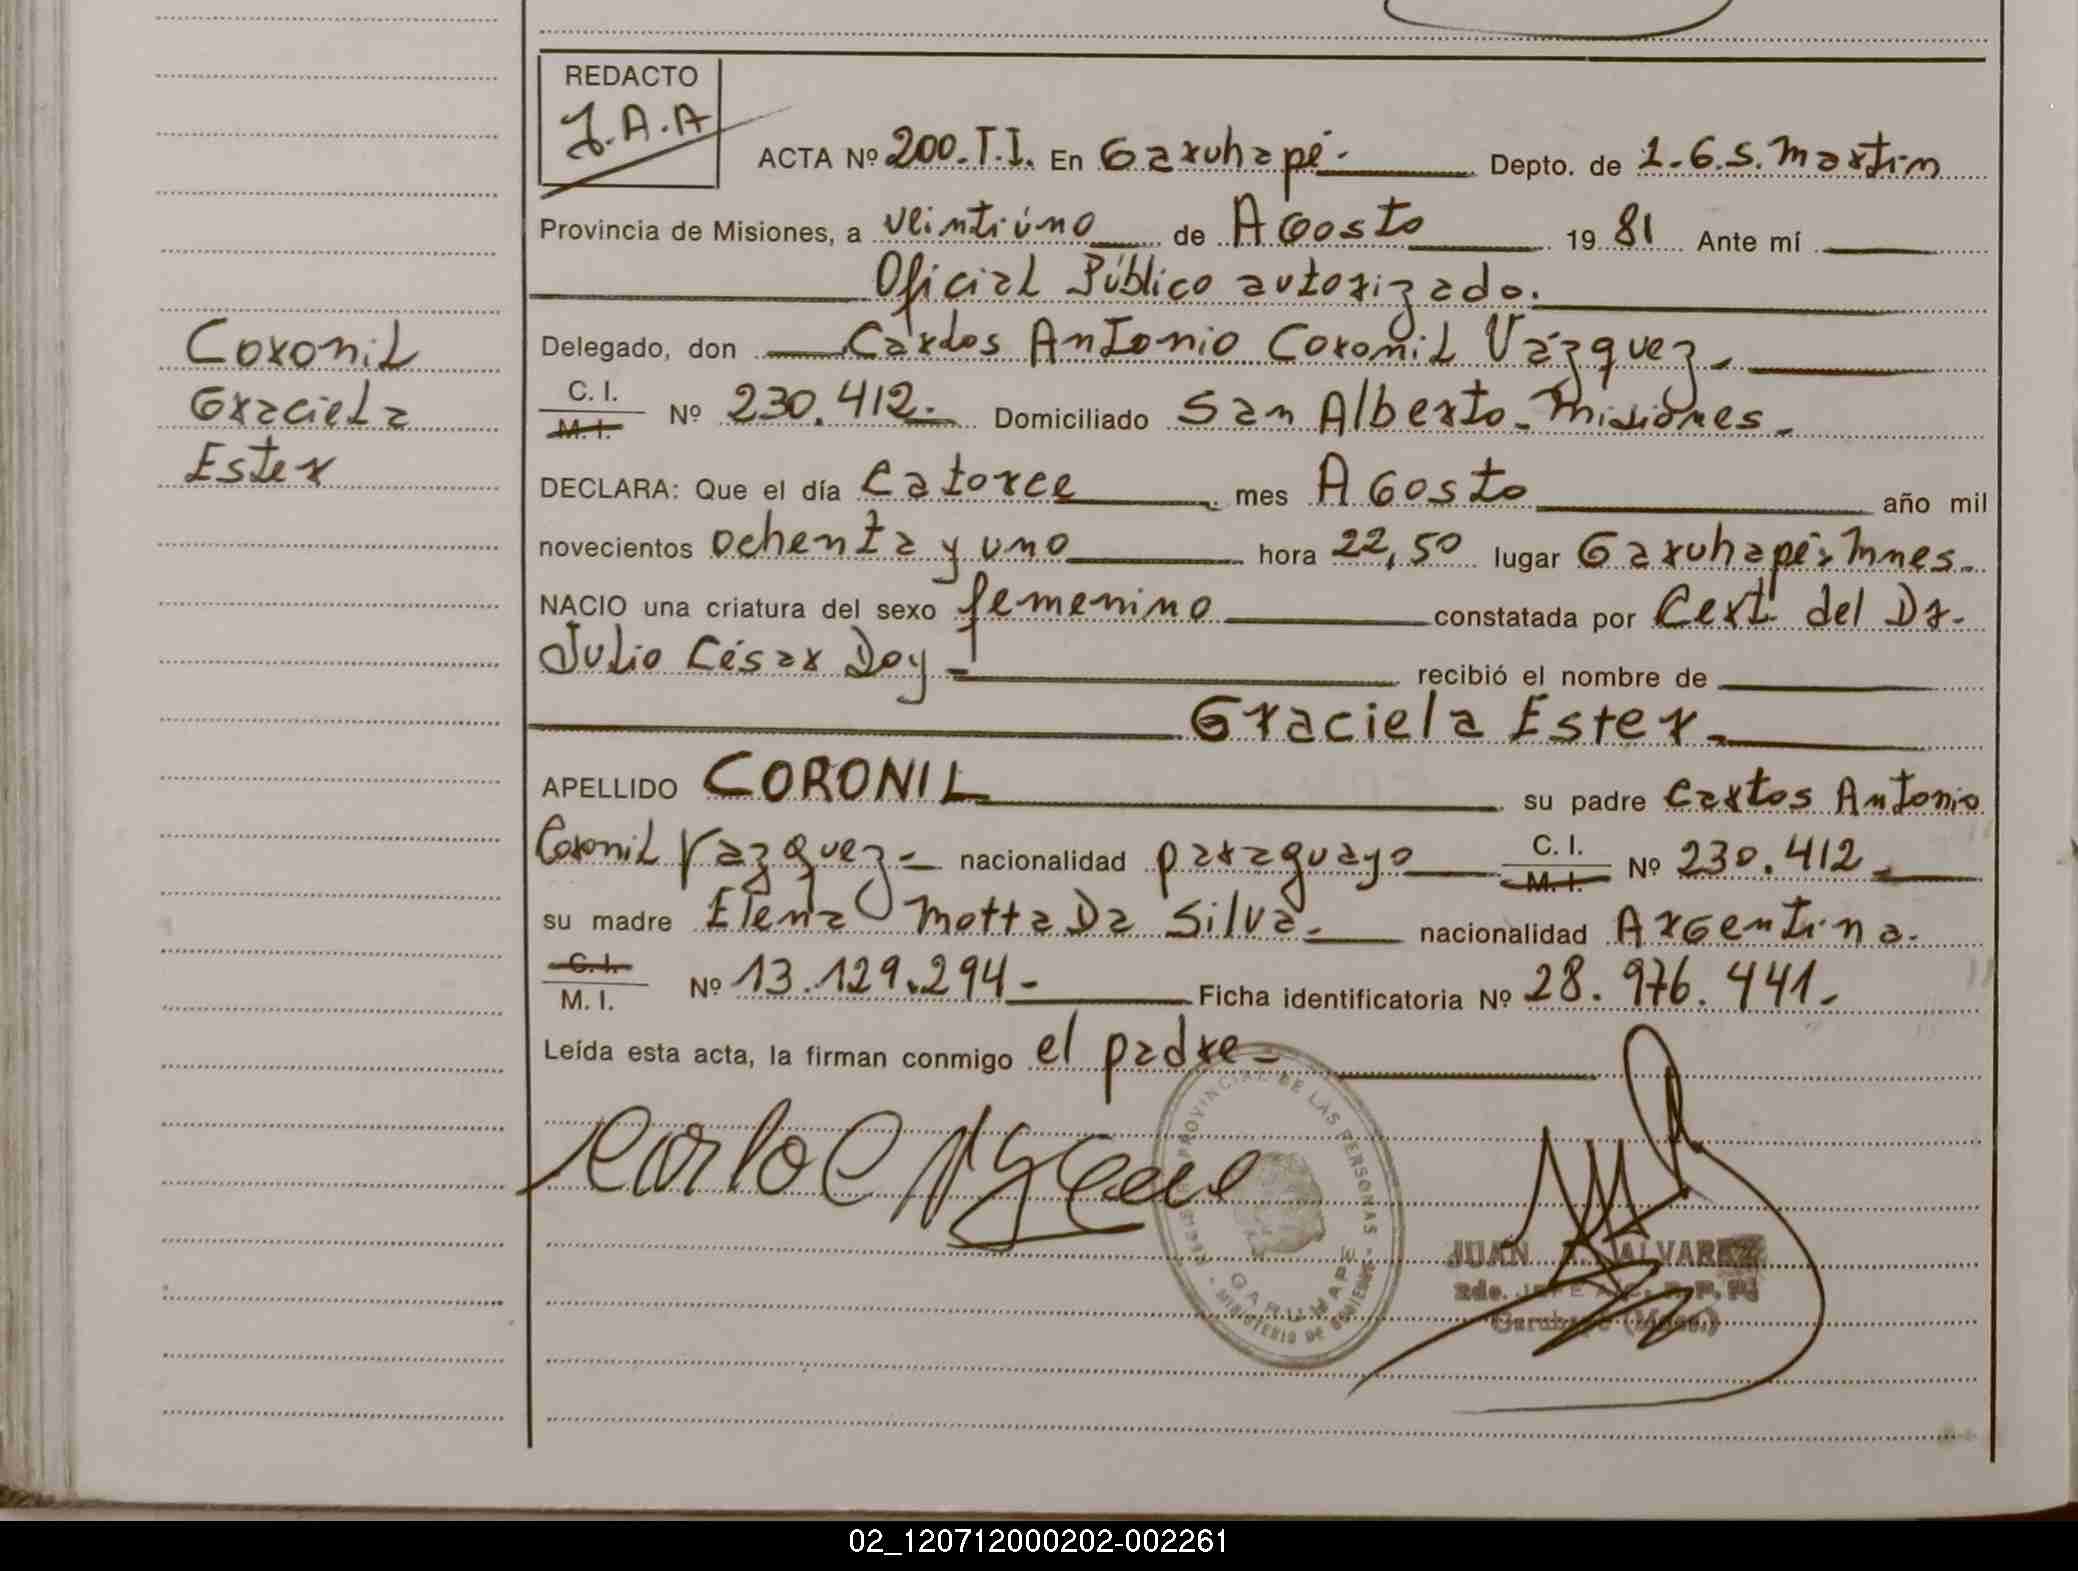 REDACTO
J.A.A
ACTA Nº 200.T.I. En Garuhapé.- Depto. de L.G.S. Martin
Provincia de Misiones, a veintiúno de AGosto 19 81 Ante mí
Oficial Público autorizado.
Delegado, don Carlos Antonio Coronil Vázquez.-
C. I.
M. I. Nº 230.412.- Domiciliado San Alberto - Misiones.-
DECLARA: Que el día Catorce mes AGosto año mil
novecientos ochenta y uno hora 22,50 lugar Garuhapé, Mnes.
NACIO una criatura del sexo femenino constatada por Cert. del Dr.
Julio César Doy - recibió el nombre de
Graciela Ester.-
APELLIDO CORONIL su padre Carlos Antonio
Coronil Vazquez.- nacionalidad paraguayo C. I.
M. I. Nº 230.412.-
su madre Elena Motta Da Silva.- nacionalidad ArGentina.
C. I.
M. I. Nº 13.129.294.- Ficha identificatoria Nº 28.976.441.-
Leída esta acta, la firman conmigo el padre.-
Coronil
Graciela
Ester
PROVINCIAL DE LAS PERSONAS
GARUHAPE
MINISTERIO DE GOBIERNO
JUAN A. ALVAREZ
2do. JEFE
Garuhapé (Mnes.)
02_120712000202-002261